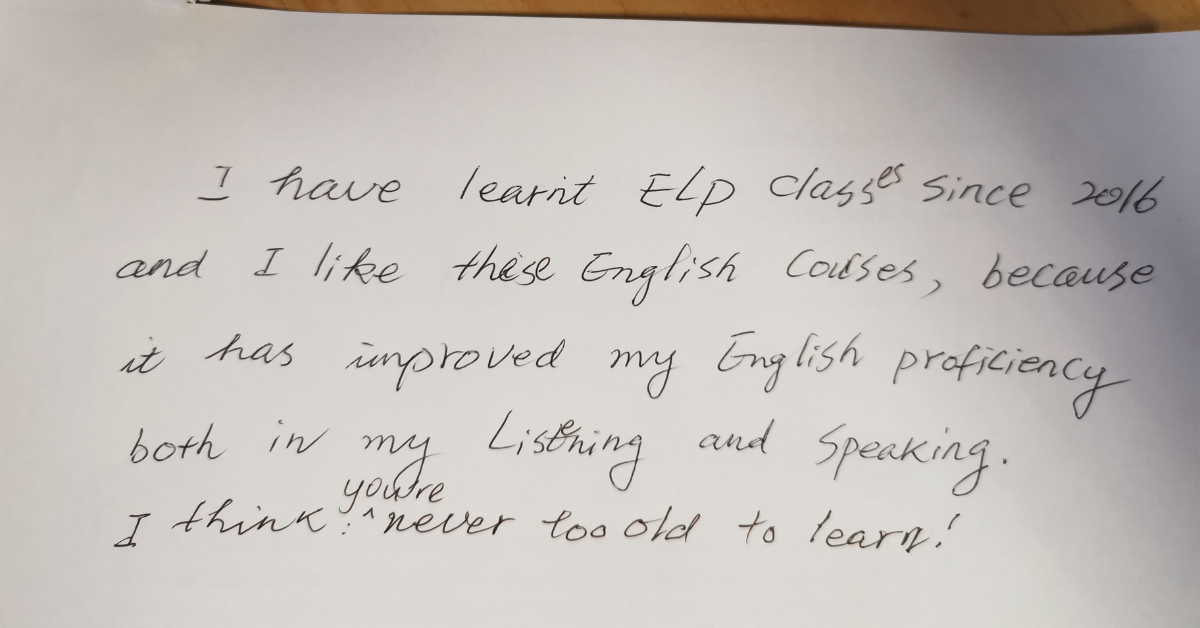 I have learnt ELP classes since 2016
and I like these English Courses, because
it has improved my English proficiency
both in my Listening and Speaking.
I think: you're never too old to learn!